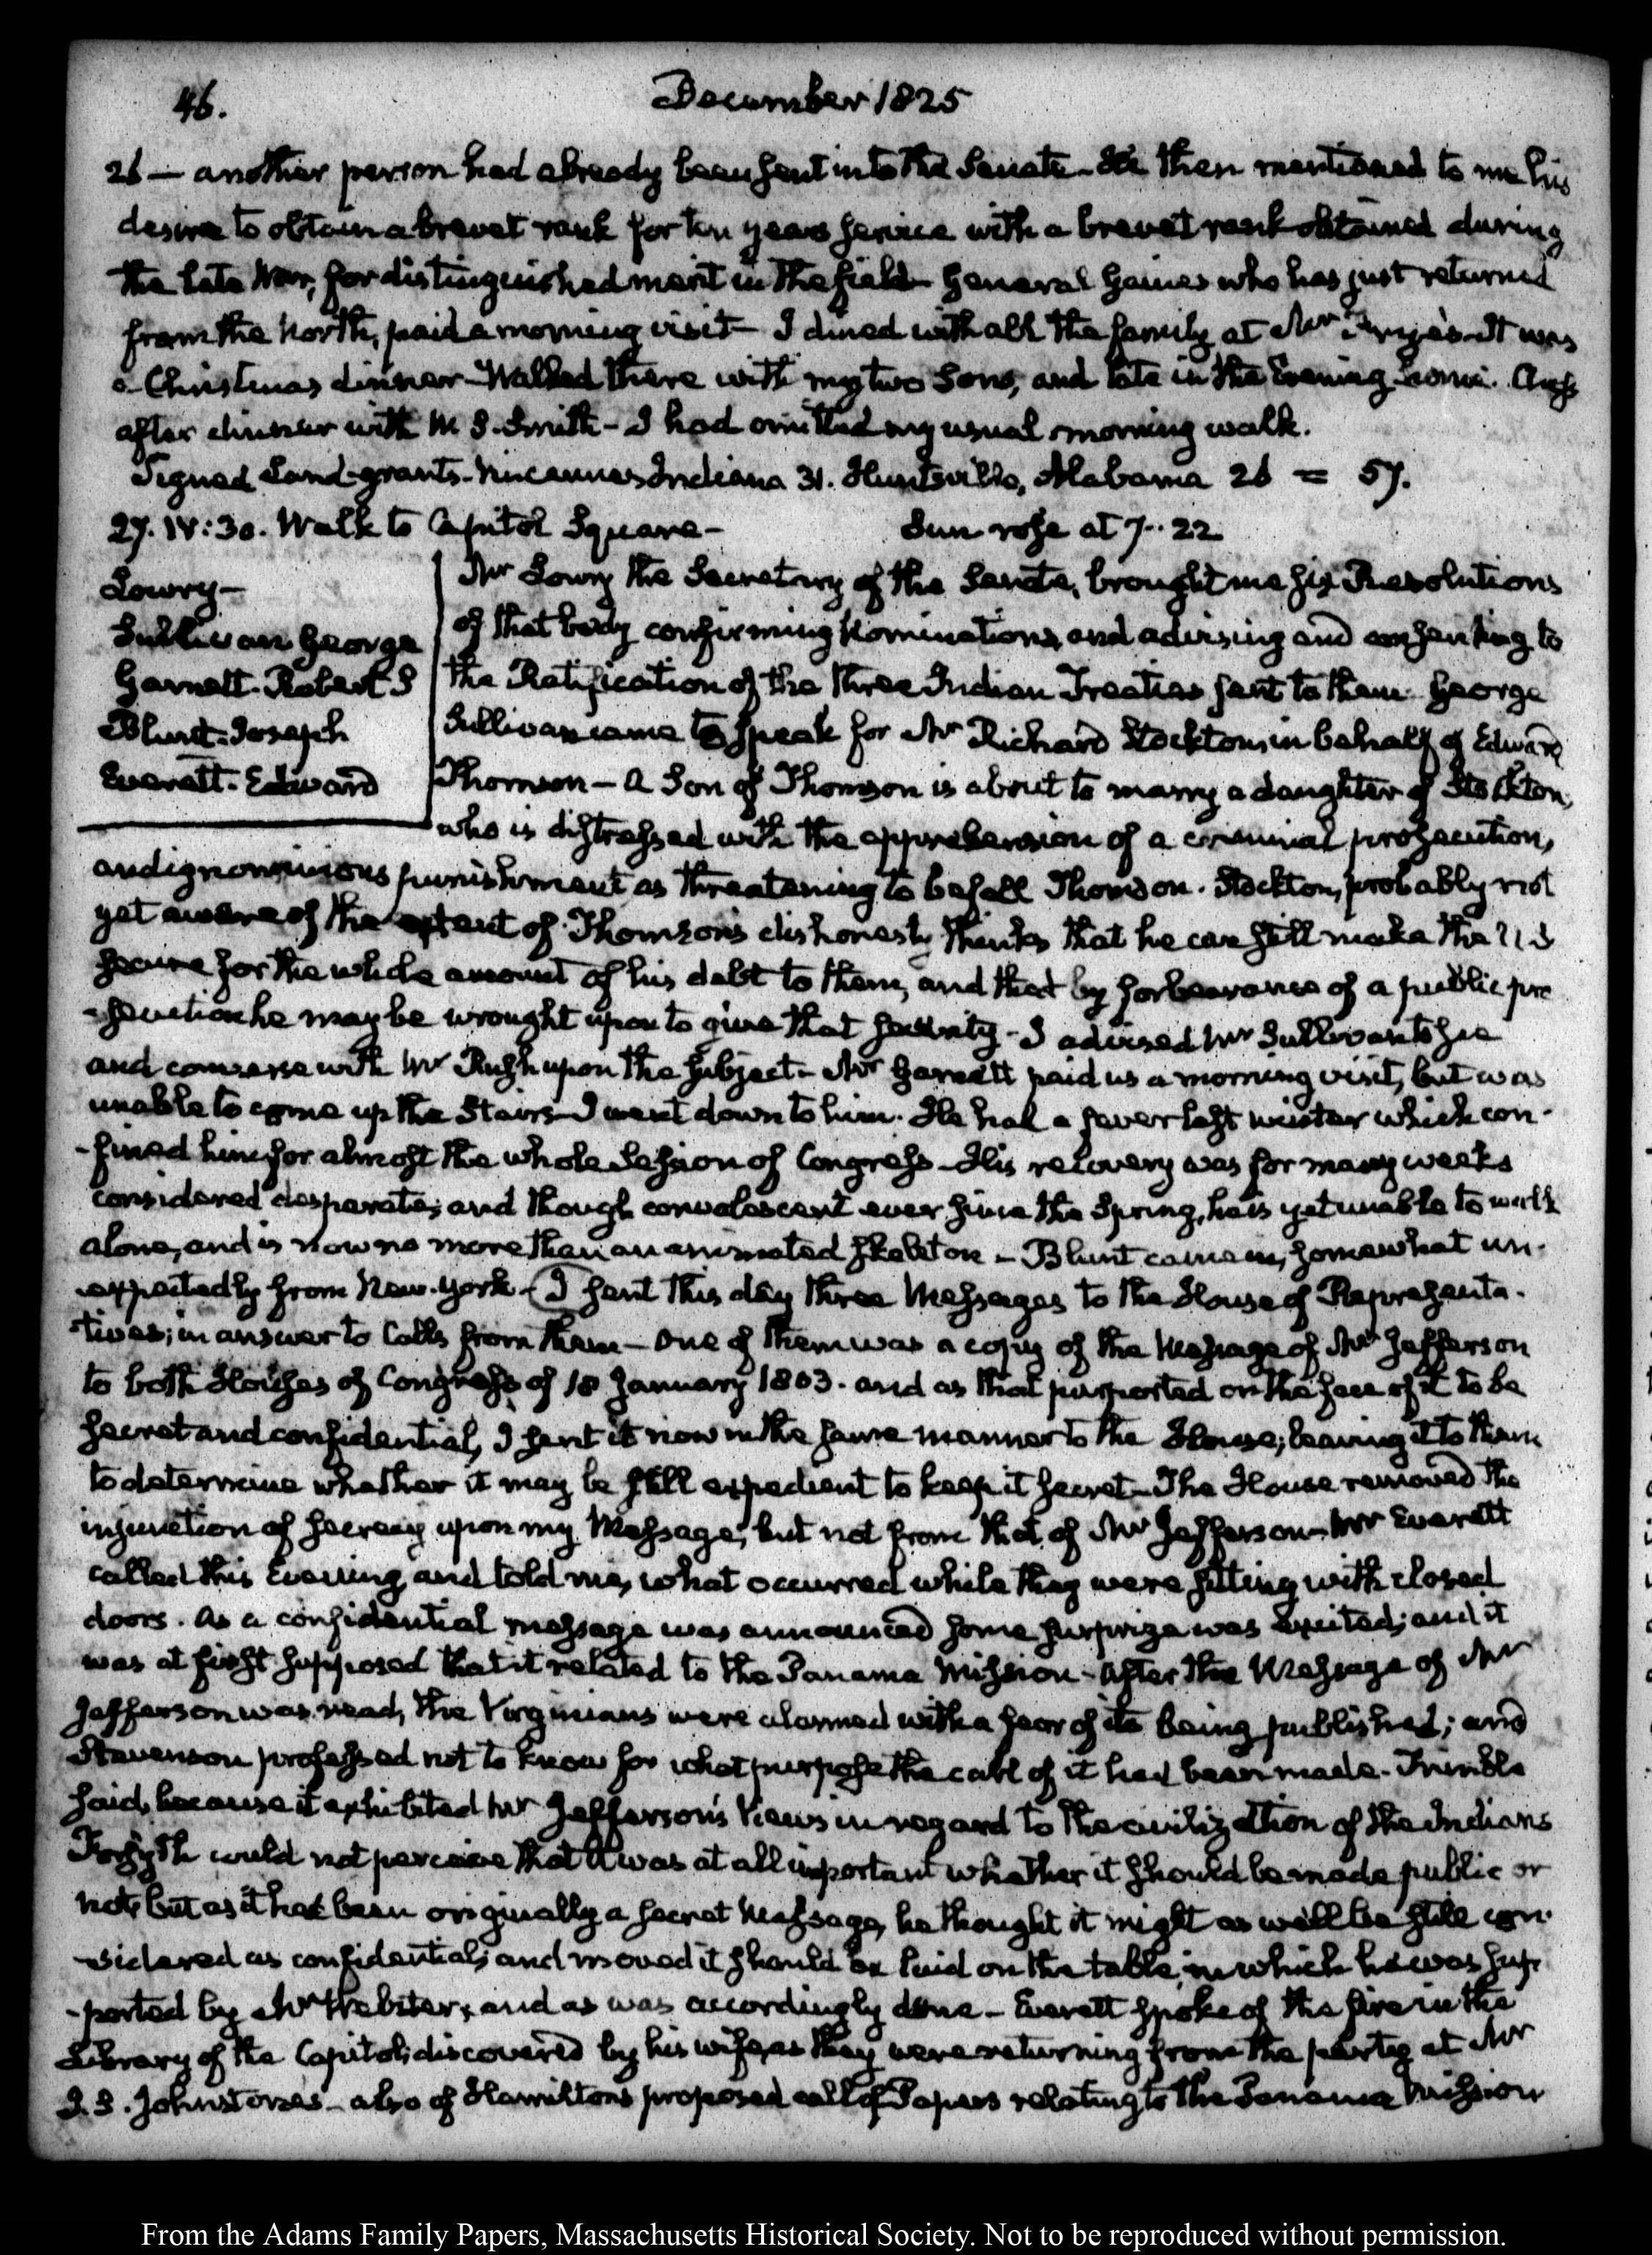 46.
December 1825
26 — another person had already been sent into the Senate – He then mentioned to me his
desire to obtain a brevet rank for ten years service with a brevet rank obtained during
the late War, for distinguished merit in the field – General Gaines who has just returned
from the North, paid a morning visit – I dined with all the family at Mr Frye's – It was
a Christmas dinner – Walked there with my two Sons, and late in the Evening home. Chess
after dinner with M S. Smith – I had omitted my usual morning walk.
Signed Land-grants. Vincennes Indiana 31. Huntsville, Alabama 26 = 57.
27. IV:30. Walk to Capitol Square – Sun rose at 7..22
Lowry –
Sullivan George
Garnett. Robert S
Blunt. Joseph
Everett. Edward
Mr Lowry the Secretary of the Senate, brought me six Resolutions
of that body confirming Nominations, and advising and consenting to
the Ratification of the three Indian Treaties sent to them. George
Sullivan came to speak for Mr Richard Stockton, in behalf of Edward
Thomson – A Son of Thomson is about to marry a daughter of Stockton,
who is distressed with the apprehension of a criminal prosecution,
and ignominious punishment as threatening to befall Thomson. Stockton, probably not
yet aware of the extent of Thomson's dishonesty thinks that he can still make the U.S
secure for the whole amount of his debt to them, and that by forbearance of a public pro
-secution he may be wrought upon to give that security – I advised Mr Sullivan to see
and converse with Mr Rush upon the subject – Mr Garnett paid us a morning visit, but was
unable to come up the Stairs – I went down to him. He had a fever last winter which con-
-fined him for almost the whole Session of Congress – His recovery was for many weeks
considered desperate; and though convalescent ever since the Spring, he is yet unable to walk
alone, and is now no more than an animated skeleton – Blunt came in, somewhat un-
-expectedly from New-York – I sent this day three Messages to the House of Representa-
-tives; in answer to Calls from them – One of them was a copy of the Message of Mr Jefferson
to both Houses of Congress of 18 January 1803. and as that purported on the face of it to be
secret and confidential, I sent it now in the same manner to the House; leaving it to them
to determine whether it may be still expedient to keep it secret – The House removed the
injunction of secrecy upon my Message, but not from that of Mr Jefferson – Mr Everett
called this Evening and told me, what occurred while they were sitting with closed
doors. As a confidential message was announced some surprize was excited; and it
was at first supposed that it related to the Panama Mission – After the Message of Mr
Jefferson was read, the Virginians were alarmed with a fear of its being published; and
Stevenson professed not to know for what purpose the call of it had been made. Trimble
said, because it exhibited Mr Jefferson's Views in regard to the civilization of the Indians
Forsyth could not perceive that it was at all important whether it should be made public or
not; but as it had been originally a secret Message, he thought it might as well be still con-
-sidered as confidential; and moved it should be laid on the table, in which he was sup-
-ported by Mr Webster, and as was accordingly done – Everett spoke of the fire in the
Library of the Capitol; discovered by his wife, as they were returning from the party at Mr
J. S. Johnston's – also of Hamilton's proposed call of Papers relating to the Panama Mission
From the Adams Family Papers, Massachusetts Historical Society. Not to be reproduced without permission.